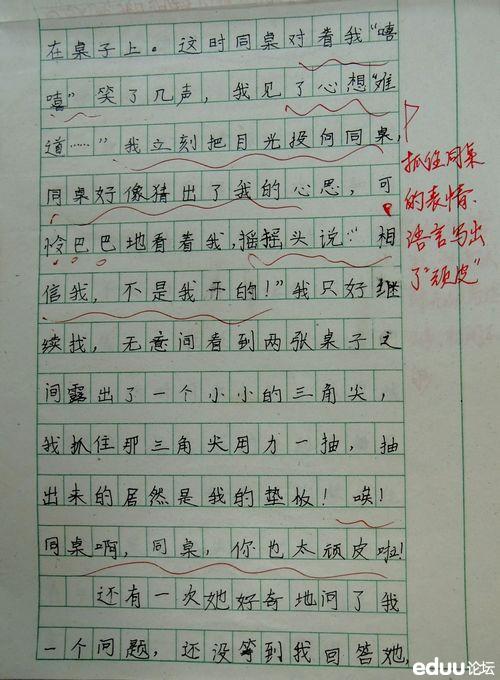 在桌子上。这时同桌对着我“嘻
嘻”笑了几声，我见了心想“难
道……”我立刻把目光投向同桌，
同桌好像猜出了我的心思，可
怜巴巴地看着我，摇摇头说：“相
信我，不是我干的！”我只好继
续找，无意间看到两张桌子之
间露出了一个小小的三角尖，
我抓住那三角尖用力一抽，抽
出来的居然是我的垫板！唉！
同桌啊，同桌，你也太顽皮啦！
还有一次她好奇地问了我
一个问题，还没等到我回答她，
抓住同桌
的表情、
语言写出
了“顽皮”
eduu论坛